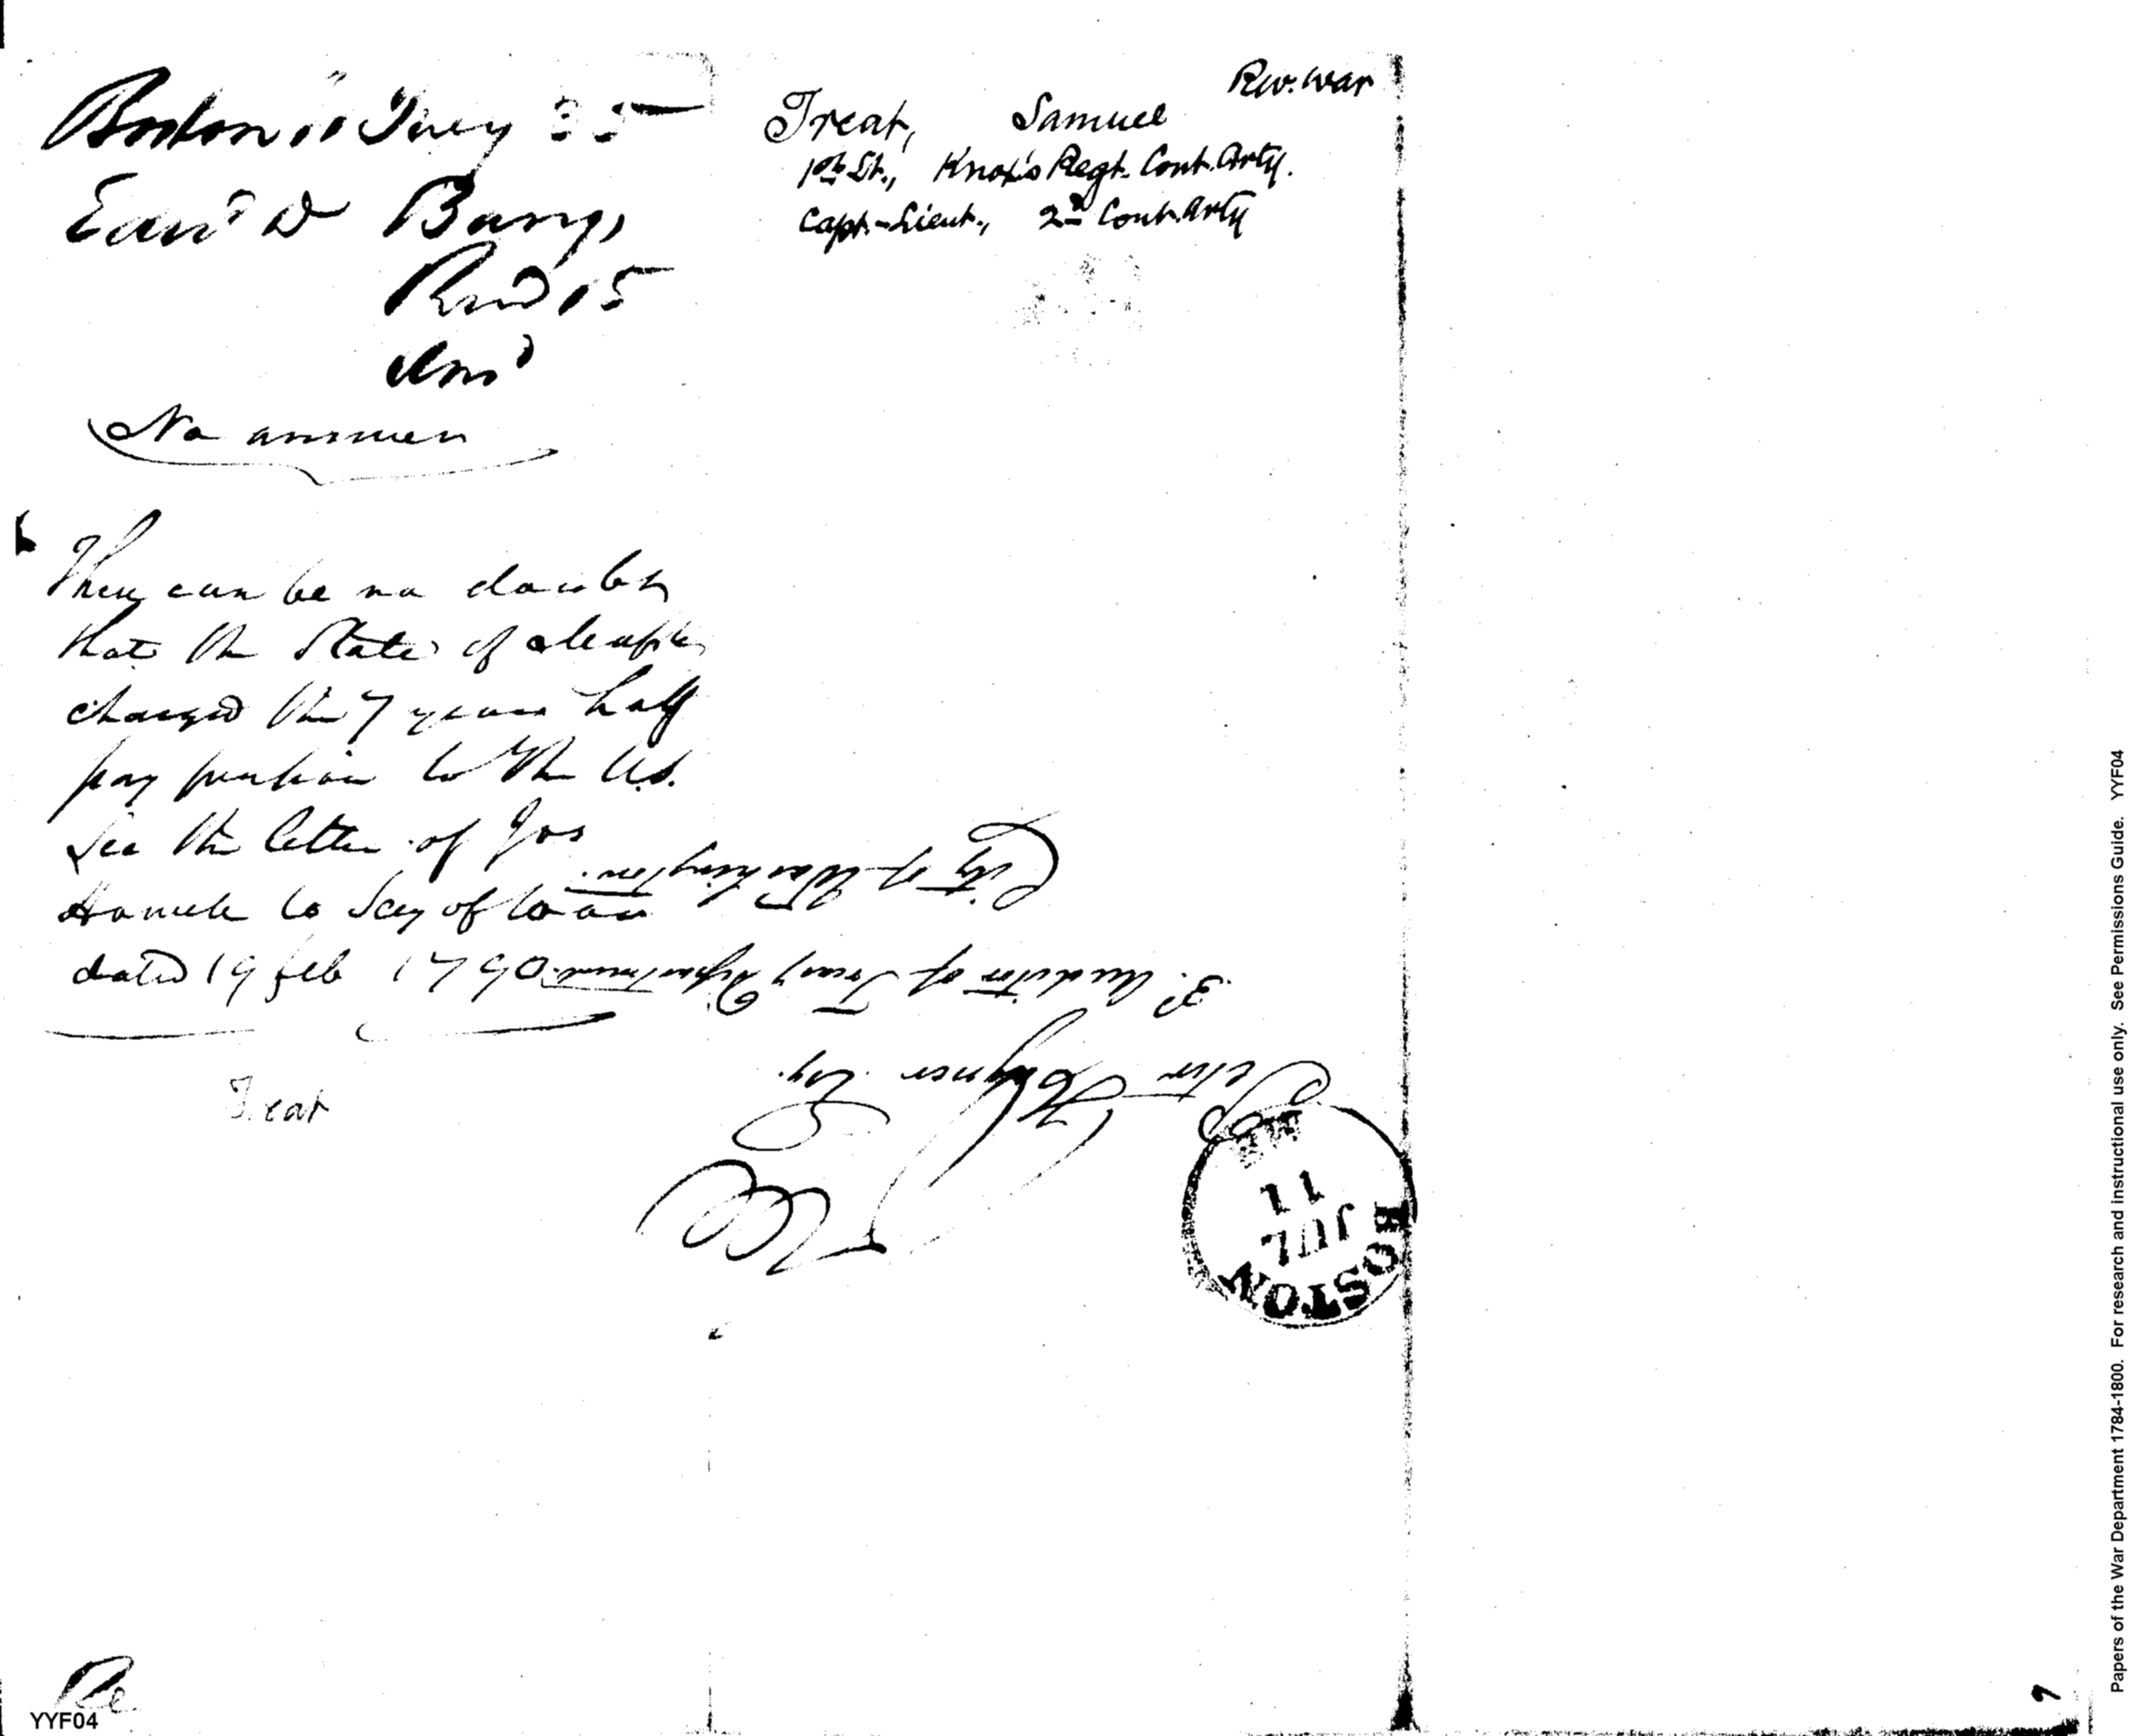 Boston 11 July 35
Edwd D Bangs
Recd 15
Ansd
No answer
There can be no doubt
that the State of Massts
charged the 7 years half
pay pension to the U.S.
See the letter of Jos
Howell to Secy of War
dated 19 feb 1790
Treat
Rev. War
Treat, Samuel
1st Lt., Knox's Regt. Cont. Arty.
Capt.-Lieut., 2d Cont. Arty
Peter Hagner Esq.
3d Auditor of Treasy Department
City of Washington.
BOSTON
JUL
11
YYF04
Papers of the War Department 1784-1800. For research and instructional use only. See Permissions Guide. YYF04